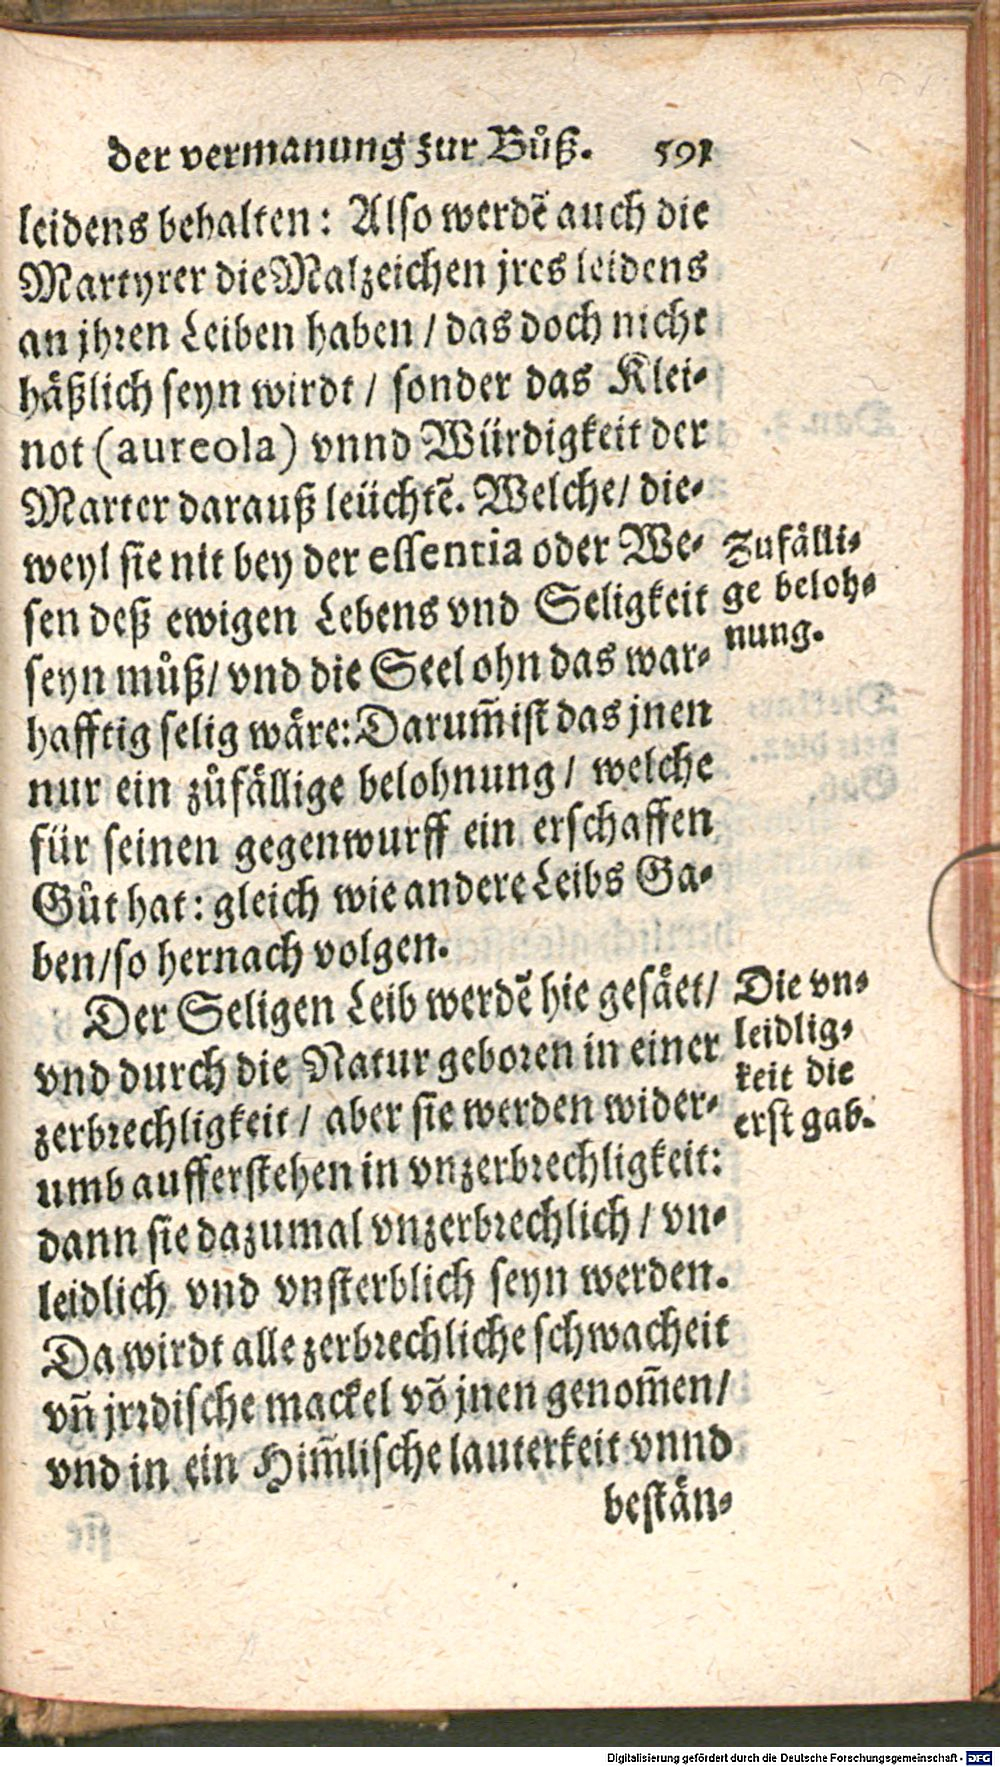 der vermanung zur Bůß. 591
leidens behalten: Also werdẽ auch die
Martyrer die Malzeichen jres leidens
an jhren Leiben haben / das doch nicht
häßlich seyn wirdt / sonder das Klei-
not (aureola) vnnd Würdigkeit der
Marter darauß leüchtẽ. Welche / die-
weyl sie nit bey der essentia oder We-
sen deß ewigen Lebens vnd Seligkeit
seyn můß / vnd die Seel ohn das war-
hafftig selig wäre: Darum̃ ist das jnen
nur ein zůfällige belohnung / welche
für seinen gegenwurff ein erschaffen
Gůt hat: gleich wie andere Leibs Ga-
ben / so hernach volgen.
Zufälli-
ge beloh-
nung.
Der Seligen Leib werdẽ hie gesäet /
vnd durch die Natur geboren in einer
zerbrechligkeit / aber sie werden wider-
umb aufferstehen in vnzerbrechligkeit:
dann sie dazumal vnzerbrechlich / vn-
leidlich vnd vnsterblich seyn werden.
Da wirdt alle zerbrechliche schwacheit
vñ jrrdische mackel võ jnen genom̃en /
vnd in ein Him̃lische lauterkeit vnnd
bestän-
Die vn-
leidlig-
keit die
erst gab.
Digitalisierung gefördert durch die Deutsche Forschungsgemeinschaft - DFG